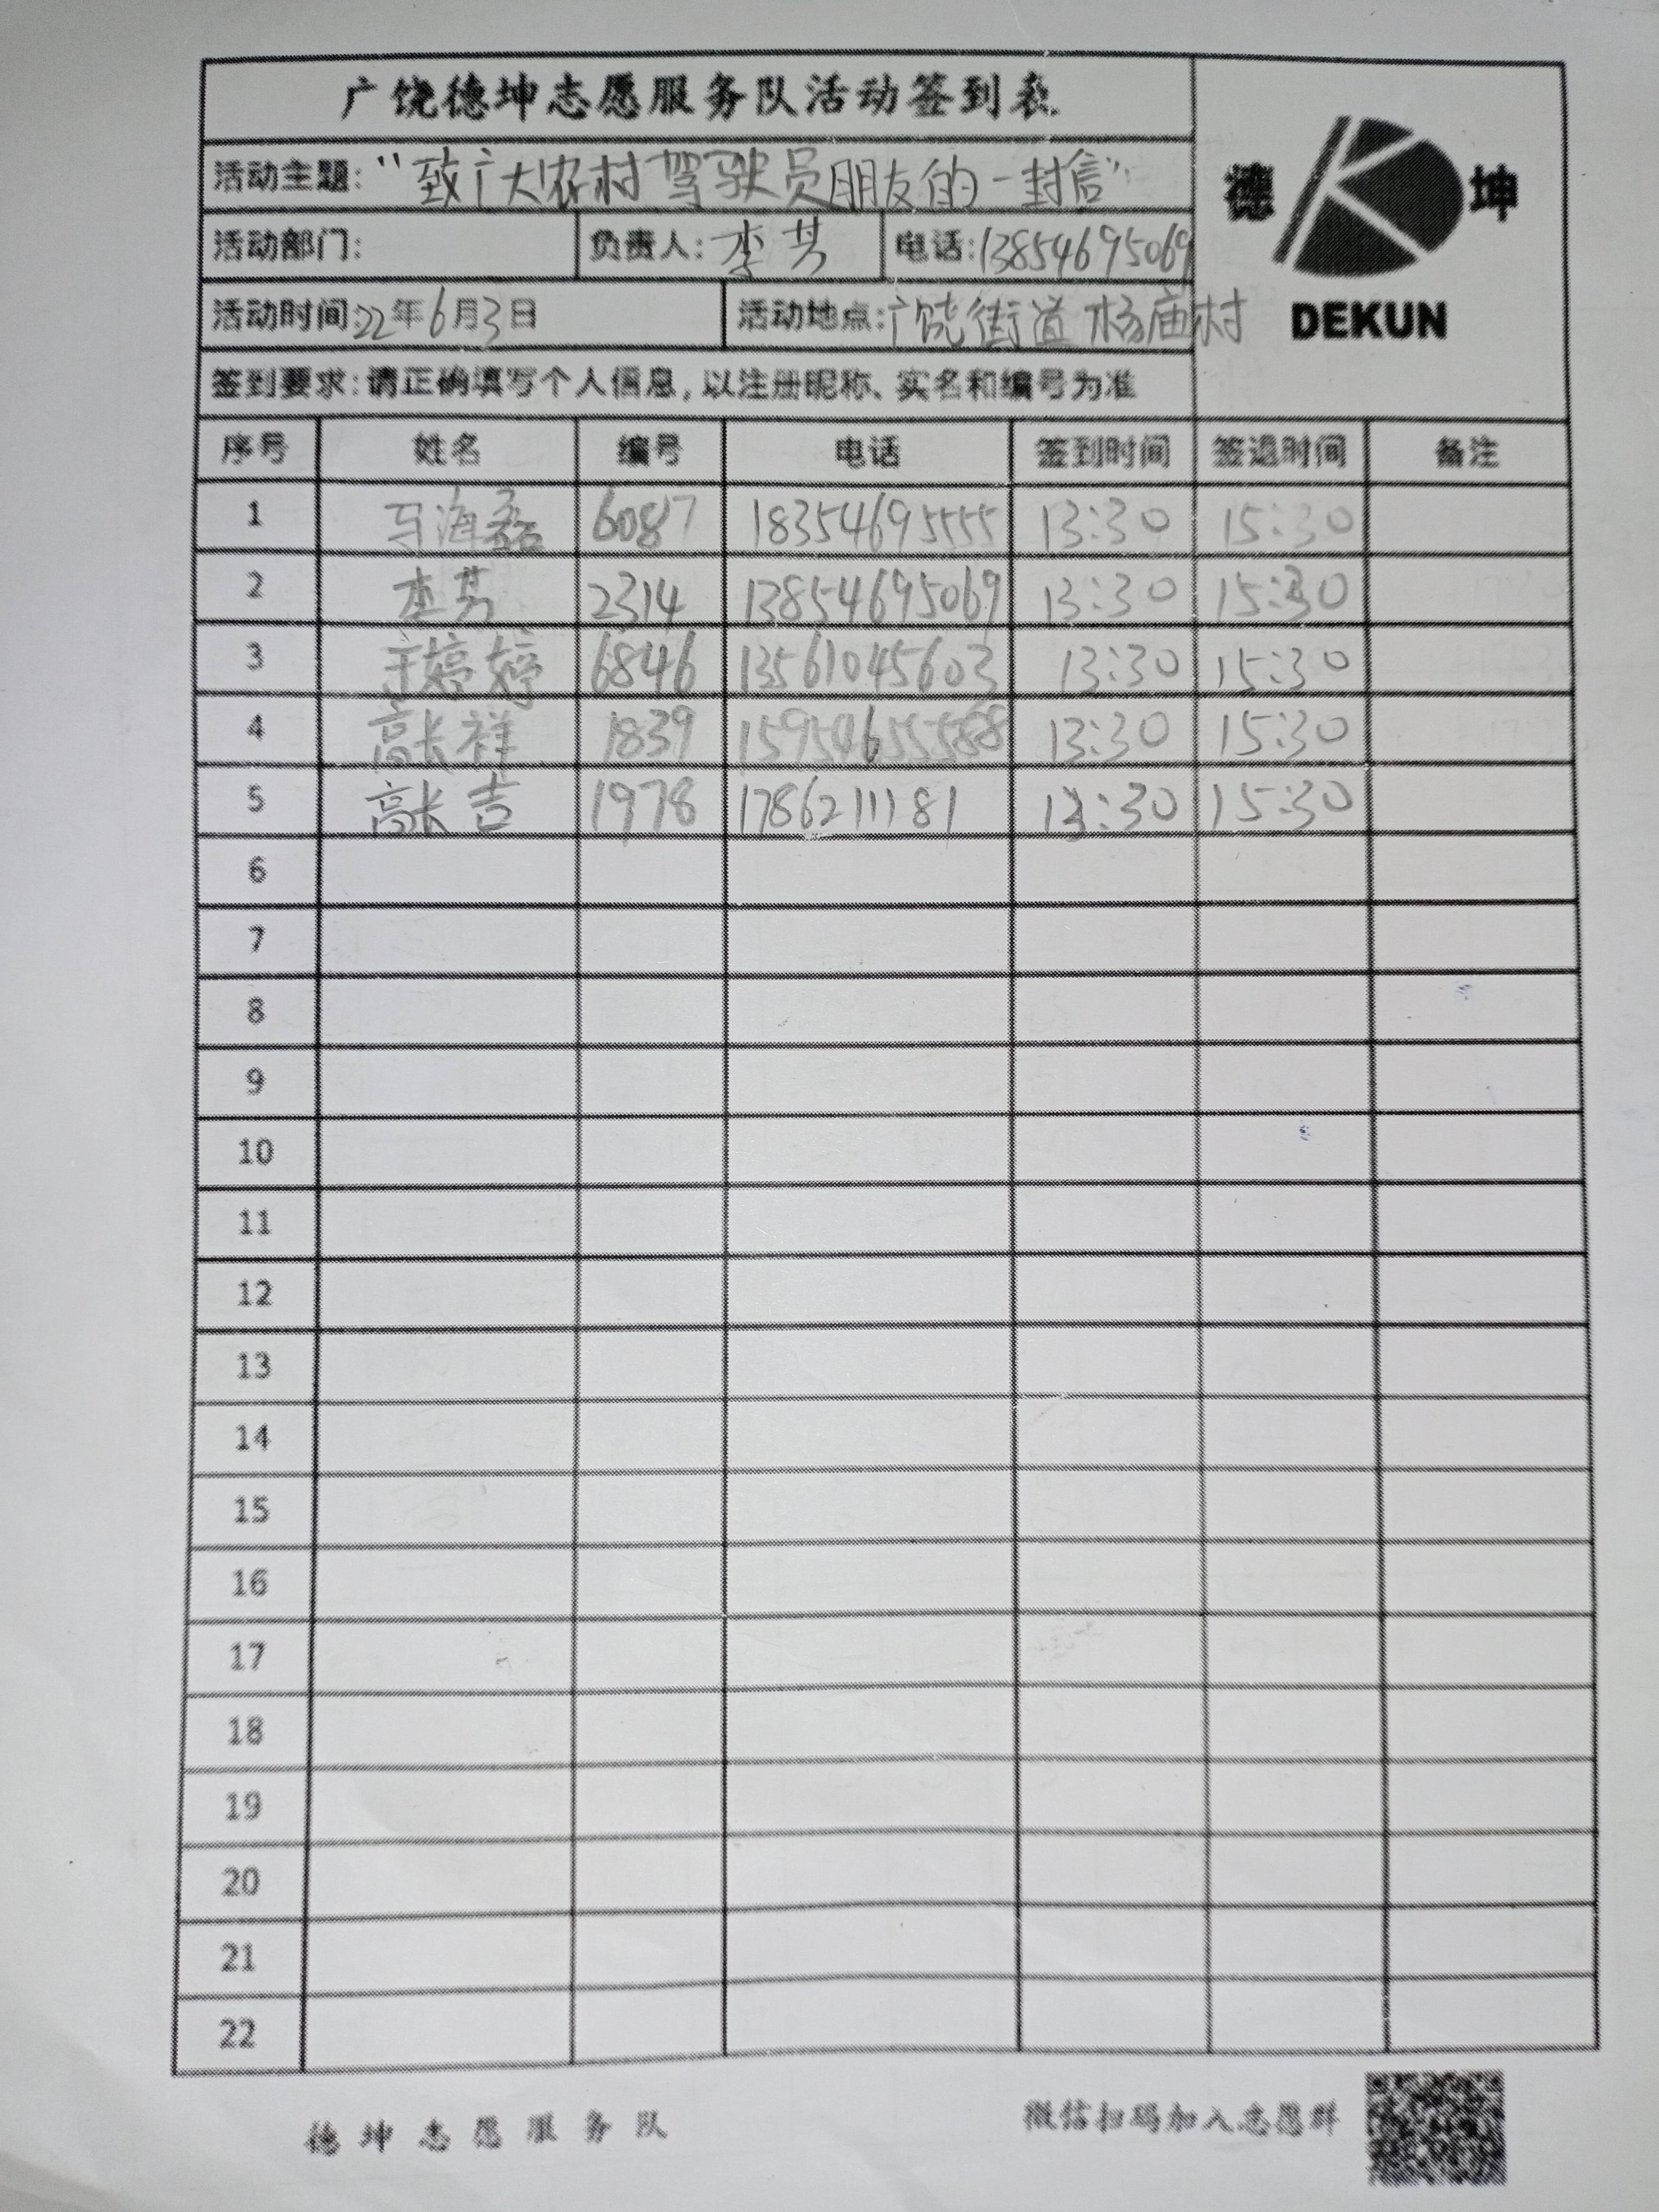 广饶德坤志愿服务队活动签到表
活动主题:“致广大农村驾驶员朋友的一封信”
德 坤
活动部门: 负责人:李芳 电话:13854695069
活动时间:22年6月3日 活动地点:广饶街道杨庙村
DEKUN
签到要求:请正确填写个人信息,以注册昵称、实名和编号为准
序号 姓名 编号 电话 签到时间 签退时间 备注
1 马海磊 6087 18354695555 13:30 15:30
2 李芳 2314 13854695069 13:30 15:30
3 婷婷 6846 13561045603 13:30 15:30
4 高长祥 1839 15954655588 13:30 15:30
5 高长吉 1978 1786211181 13:30 15:30
6
7
8
9
10
11
12
13
14
15
16
17
18
19
20
21
22
德坤志愿服务队 微信扫码加入志愿群